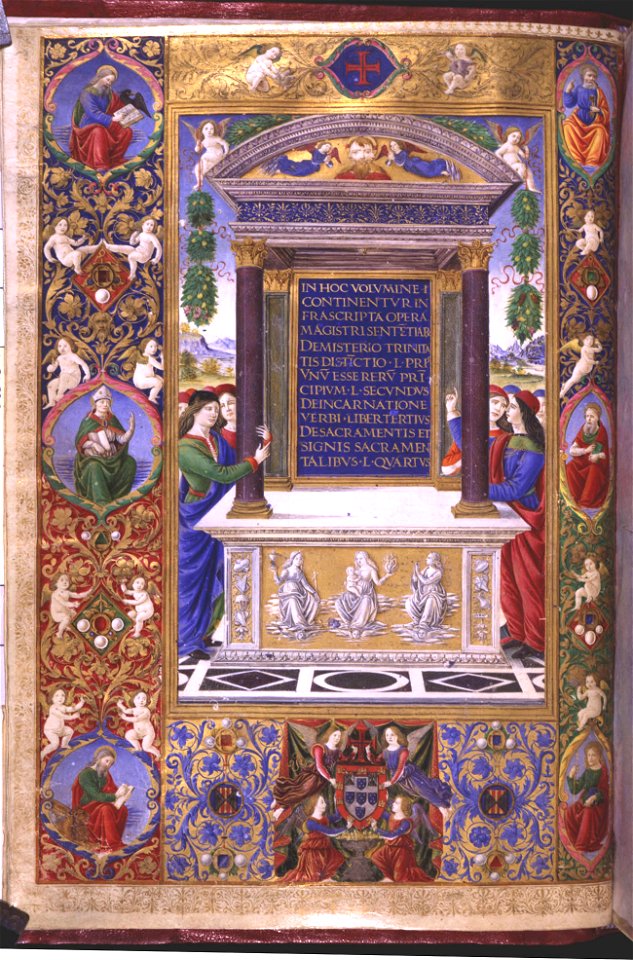 IN HOC VOLVMINE·I
CONTINENTVR IN
FRASCRIPTA OPERA
MAGISTRI SENTĒTIAR̄
DE MISTERIO TRINITA
TIS DISTĪCTIO·L·PRI
VNV̄ ESSE RERV̄ PRĪ
CIPIVM·L·SECVNDVS
DE INCARNATIONE
VERBI·LIBER TERTIVS
DE SACRAMENTIS ET
SIGNIS SACRAMEN
TALIBVS·L·QVARTVS